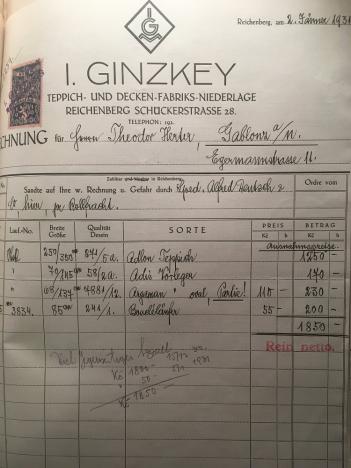 Reichenberg, am 2. Jänner 1931
G
I. GINZKEY
TEPPICH- UND DECKEN-FABRIKS-NIEDERLAGE
REICHENBERG SCHÜCKERSTRASSE 28.
TELEPHON: 192.
CHNUNG für Herrn Theodor Herter, Gablonz a/n.
Egermannstrasse 11.
Zahlbar und klagbar in Reichenberg.
No Sandte auf Ihre w. Rechnung u. Gefahr durch Alfred Deutsch Ordre vom
hier, pr Bollfracht.
Lauf.-No. Breite Größe Qualität Dessin SORTE PREIS BETRAG
Kč h Kč h
Ausnahmspreise.
250/350 Adlon Teppich 1250 -
70/145 58/2a. Adir Vorleger 170 -
68/137 7881/12. oval, Partie! 115 - 230 -
3834. 85 241/1. Boucléläufer 55 - 200 -
1850 -
Rein netto.
Kč 1800 -
50 -
Kč 1850 -